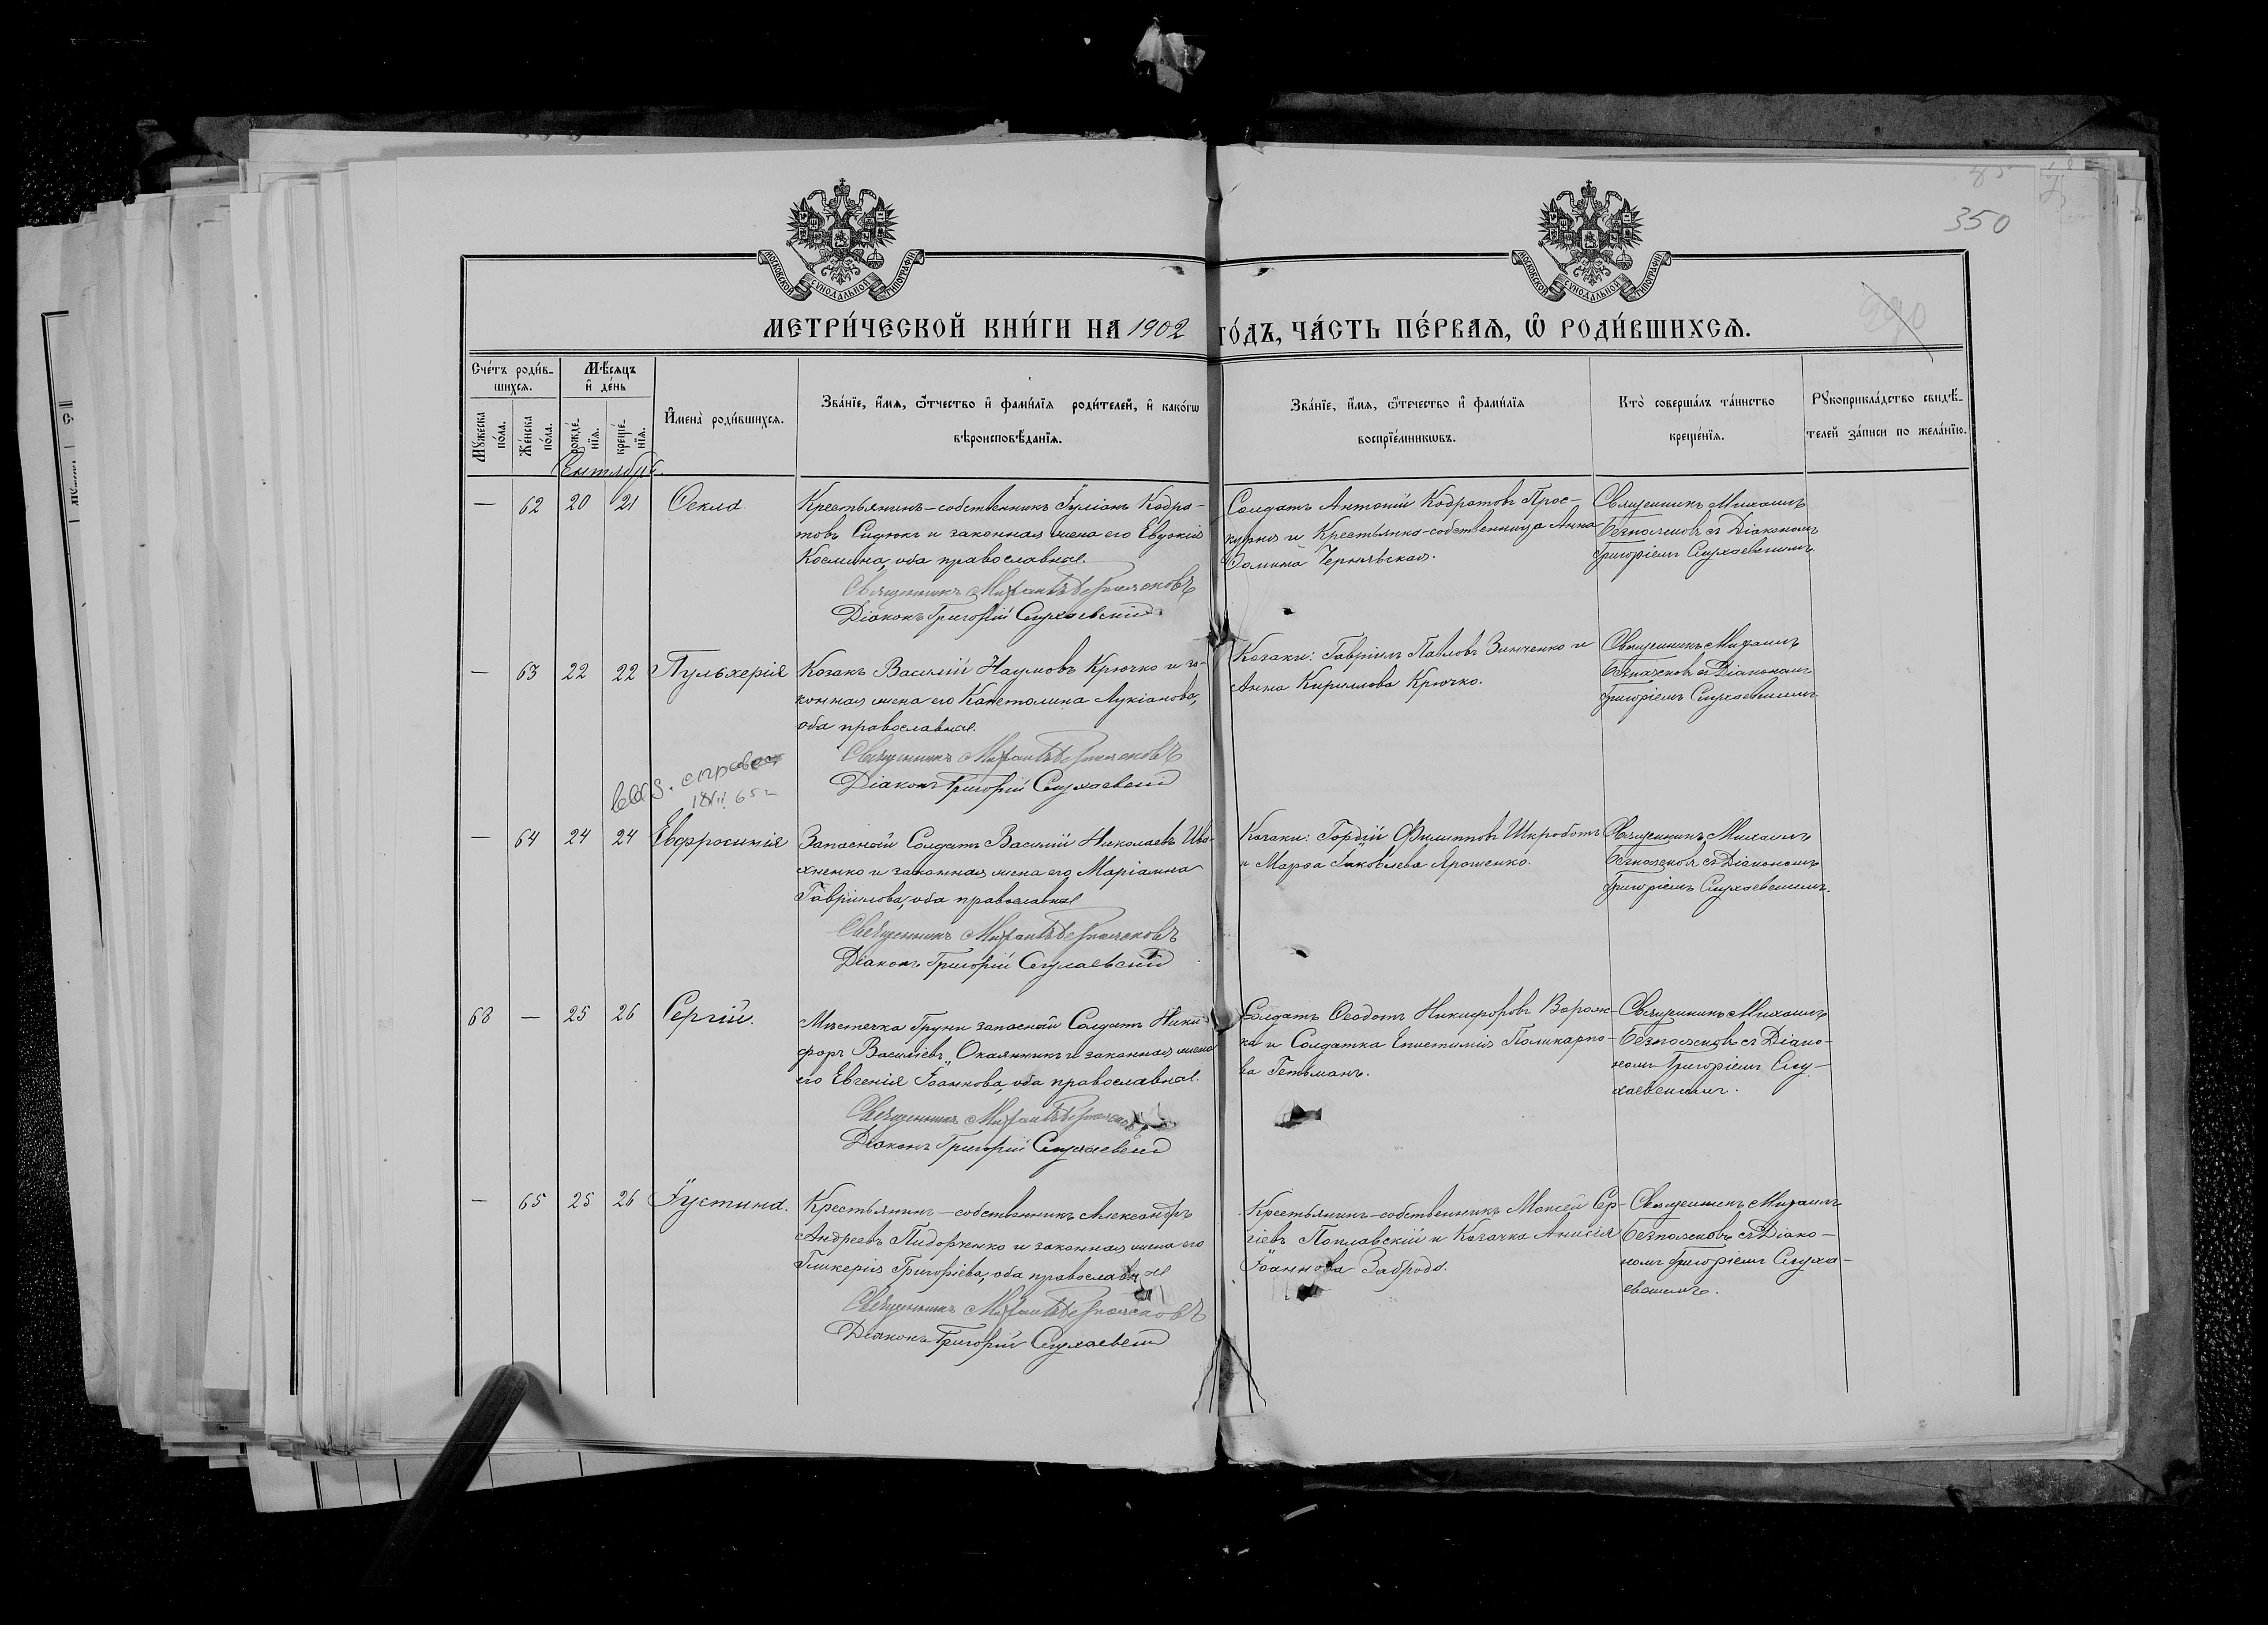 85
350
290
МОСКОВСКОЙ СѴНОДАЛЬНОЙ ТИПОГРАФІИ
МОСКОВСКОЙ СѴНОДАЛЬНОЙ ТИПОГРАФІИ
МЕТРИ́ЧЕСКОЙ КНИ́ГИ НА 1902 ГО́ДЪ, ЧА́СТЬ ПЕ́РВАѦ, Ѡ҆ РОДИ́ВШИХСѦ.
Сче́тъ роди́в-
шихсѧ.
Мѣ́сѧцъ
и҆ де́нь
Мꙋ́жеска
по́ла.
Же́нска
по́ла.
рожде́-
нїѧ.
креще́-
нїѧ.
И҆мена̀ роди́вшихсѧ.
Зва́нїе, и҆́мѧ, ѻ҆́тчество и҆ фами́лїѧ роди́телей, и҆ како́гѡ
вѣроисповѣ́данїѧ.
Зва́нїе, и҆́мѧ, ѻ҆те́чество и҆ фами́лїѧ
воспрїе́мникѡвъ.
Кто̀ соверша́лъ та́инство
креще́нїѧ.
Рꙋкоприкла́дство свидѣ́-
телей за́писи по жела́нїю.
Сентябрь.
— 62 20 21 Ѳекла.
Крестьянинъ-собственникъ Іуліанъ Кодра-
товъ Сидюкъ и законная жена его Евдокія
Космина, оба православные.
Священникъ Михаилъ Безпалсковъ
Діаконъ Григорій Слухаевскій
Солдатъ Антоній Кодратовъ Прос-
курня и Крестьянка-собственница Анна
Ѳомина Чернявская.
Священникъ Михаилъ
съ Діакономъ
Григоріемъ Слухаевскимъ.
— 63 22 22 Пульхерія
Козакъ Василій Наумовъ Крючко и за-
конная жена его Капетолина Лукіанова,
оба православные.
Священникъ Михаилъ
Діаконъ Григорій Слухаевскій
Козаки: Гавріилъ Павловъ Зинченко и
Анна Кириллова Крючко.
Священникъ Михаилъ
съ Діакономъ
Григоріемъ Слухаевскимъ.
выд. справка
65 г
— 64 24 24 Евфросинія
Запасной Солдатъ Василій Николаевъ Ива-
хненко и законная жена его Маріамна
Гавріилова, оба православные
Священникъ Михаилъ
Діаконъ Григорій Слухаевскій
Козаки: Гордій Филипповъ Шкроботъ
и Марѳа Іаковлева Ярошенко.
Священникъ Михаилъ
съ Діакономъ
Григоріемъ Слухаевскимъ.
68 — 25 26 Сергій.
Мѣстечка Груни запасной Солдатъ Ники-
форъ Василіевъ Окаянникъ и законная жена
его Евгенія Іоаннова, оба православные.
Священникъ Михаилъ
Діаконъ Григорій Слухаевскій
Солдатъ Ѳеодотъ Никифоровъ Ворож-
ка и Солдатка Епистимія Поликарпо-
ва Гетьманъ.
Священникъ Михаилъ
съ Діако-
номъ Григоріемъ Слу-
хаевскимъ.
— 65 25 26 Іустина.
Крестьянинъ-собственникъ Александръ
Андреевъ Пидорженко и законная жена его
Гликерія Григоріева, оба православные
Священникъ Михаилъ
Діаконъ Григорій Слухаевскій
Крестьянинъ-собственникъ Моисей Сер-
гіевъ Поплавскій и Козачка Анисія
Іоаннова Заброда.
Священникъ Михаилъ
съ Діако-
номъ Григоріемъ Слуха-
евскимъ.